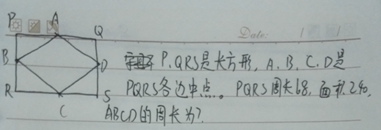 P A Q
Date
P.QRS是长方形,A、B、C、D是
B D
PQRS各边中点。PQRS周长68,面积240,
R S
C
ABCD的周长为?